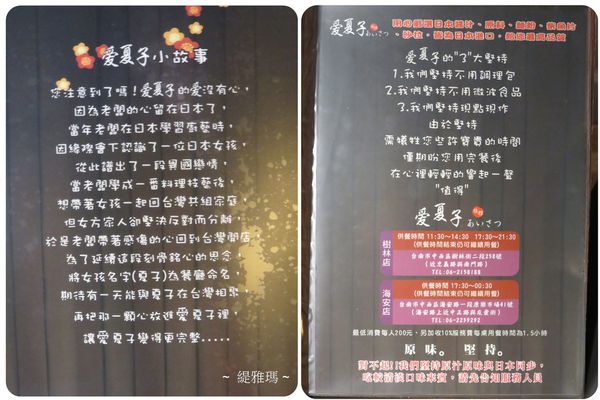 愛夏子小故事
您注意到了嗎!愛夏子的愛沒有心,
因為老闆的心留在日本了,
當年老闆在日本學習廚藝時,
因緣際會下認識了一位日本女孩,
從此譜出了一段異國戀情,
當老闆學成一番料理技藝後,
想帶著女孩一起回台灣共組家庭,
但女方家人卻堅決反對而分離,
於是老闆帶著感傷的心回到台灣開店,
為了延續這段刻骨銘心的思念,
將女孩名字(夏子)為餐廳命名,
期待有一天能與夏子在台灣相聚,
再把那一顆心放進愛夏子裡,
讓愛夏子變得更完整.....
~ 緹雅瑪 ~
愛夏子 あいさつ
用心嚴選日本醬汁、原料、麵粉、柴魚片
、秒拉,皆為日本進口,給您最高品質
愛夏子的"3"大堅持
1.我們堅持不用調理包
2.我們堅持不用微波食品
3.我們堅持現點現作
由於堅持
需犧牲您些許寶貴的時間
僅期盼您用完餐後
在心裡輕輕的響起一聲
"值得"
愛夏子 あいさつ
樹林店
供餐時間 11:30~14:30 17:30~21:30
(供餐時間結束仍可繼續用餐)
台南市中西區樹林街二段298號
(近忠義路與南門路)
TEL:06-2158188
海安店
供餐時間 17:30~00:30
(供餐時間結束仍可繼續用餐)
台南市中西區海安路一段康樂市場61號
(海安路上近中正路與友愛街)
TEL:06-2259292
最低消費每人200元、另加收10%服務費每桌用餐時間為1.5小時
原味。堅持。
對不起!!我們堅持原汁原味與日本同步,
吃較清淡口味來賓,請先告知服務人員